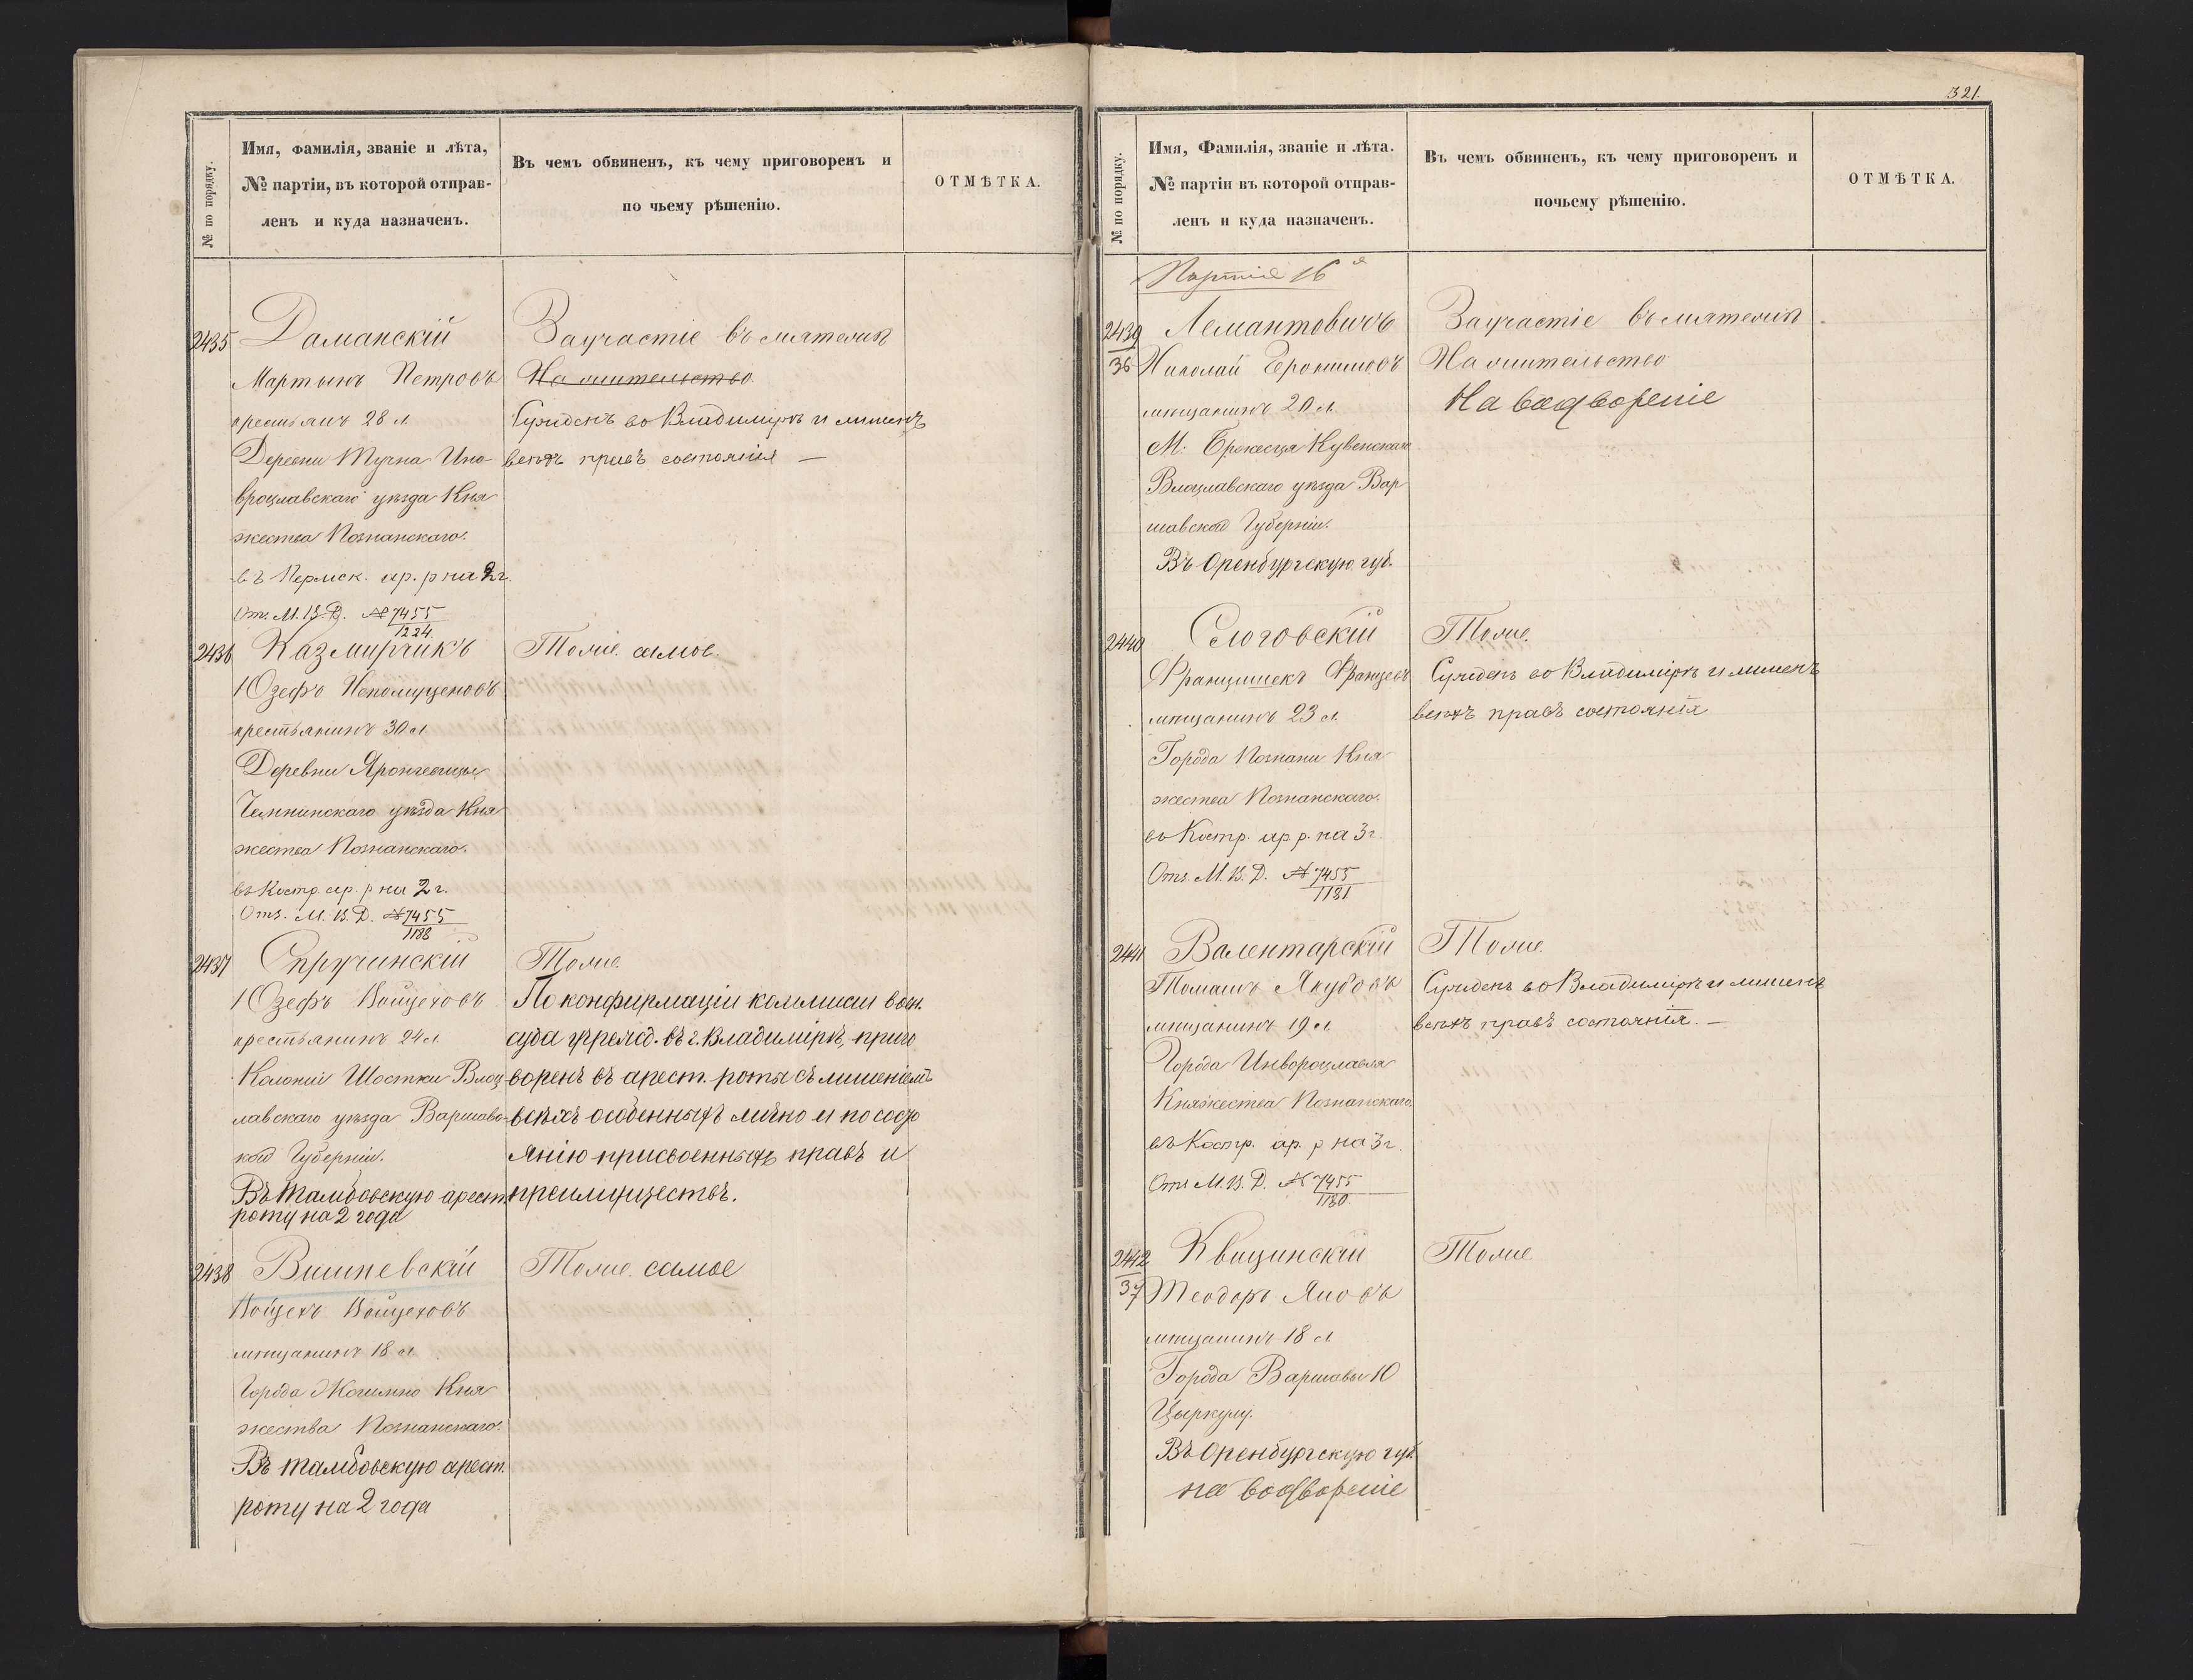 321.
№ по порядку.
Имя, Фамилія, званіе и лѣта,
№ партіи, въ которой отправ-
ленъ и куда назначенъ.
Въ чемъ обвиненъ, къ чему приговоренъ и
по чьему рѣшенію.
ОТМѢТКА.
2435
Даманскій
Мартынъ Петровъ
28 л.
Деревни Тучна Ино-
вроцлавскаго уѣзда Кня
жества Познанскаго.
въ Пермск. ар. р на 2 г.
Отз. М. В. Д. № 7455
1224.
За участіе въ мятежѣ
На жительство
Сужденъ во Владимірѣ и лишенъ
всѣхъ правъ состоянія —
2436
Казмирчикъ
Юзефъ Непомуценовъ
крестьянинъ 30 л
Деревни
уѣзда Кня
жества Познанскаго.
въ Костр. ар. р на 2 г.
Отз. М. В. Д. № 7455
1188
Тоже самое.
2437
Спружинскій
Юзефъ Войцеховъ
крестьянинъ 24 л.
Колоніи Шостки Влоц
лавскаго уѣзда Варшавс-
кой Губерніи.
Въ тамбовскую арест.
роту на 2 года
Тоже.
По конфирмаціи коммисіи воен.
суда учрежд. въ г. Владимірѣ, приго
воренъ въ арест. роты съ лишеніемъ
всѣхъ особенныхъ лично и по состо
янію присвоенныхъ правъ и
преимуществъ.
2438
Вишневскій
Войцехъ Войцеховъ
мѣщанинъ 18 л.
Города Могильно Кня
жества Познанскаго.
Въ тамбовскую арест.
роту на 2 года
Тоже самое
№ по порядку.
Имя, Фамилія, званіе и лѣта.
№ партіи въ которой отправ-
ленъ и куда назначенъ.
Въ чемъ обвиненъ, къ чему приговоренъ и
почьему рѣшенію.
ОТМѢТКА.
Партія 16 я
2439
36
Лемантовичъ
Николай Еронимовъ
мѣщанинъ 20 л.
М.
Влоцлавскаго уѣзда Вар
шавской Губерніи.
Въ Оренбургскую губ.
За участіе въ мятежѣ
На жительство
На водвореніе
2440
Слоговскій
Францишекъ Францевъ
мѣщанинъ 23 л.
Города Познани Кня
жества Познанскаго.
въ Костр. ар. р. на 3 г
Отз. М. В. Д. № 7455
1181
Тоже.
Сужденъ во Владимірѣ и лишенъ
всѣхъ правъ состоянія
2441
Валентарскій
Томашъ Якубовъ
мѣщанинъ 19 л
Города Инвороцлавля
Княжества Познанскаго.
въ Костр. ар. р на 3 г.
Отз. М. В. Д. № 7455
1180.
Тоже
Сужденъ во Владимірѣ и лишенъ
всѣхъ правъ состоянія. —
2442
37
Квицинскій
Теодоръ Яновъ
мѣщанинъ 18 л
Города Варшавы 10
Цыркулу.
Въ Оренбургскую губ.
на водвореніе
Тоже